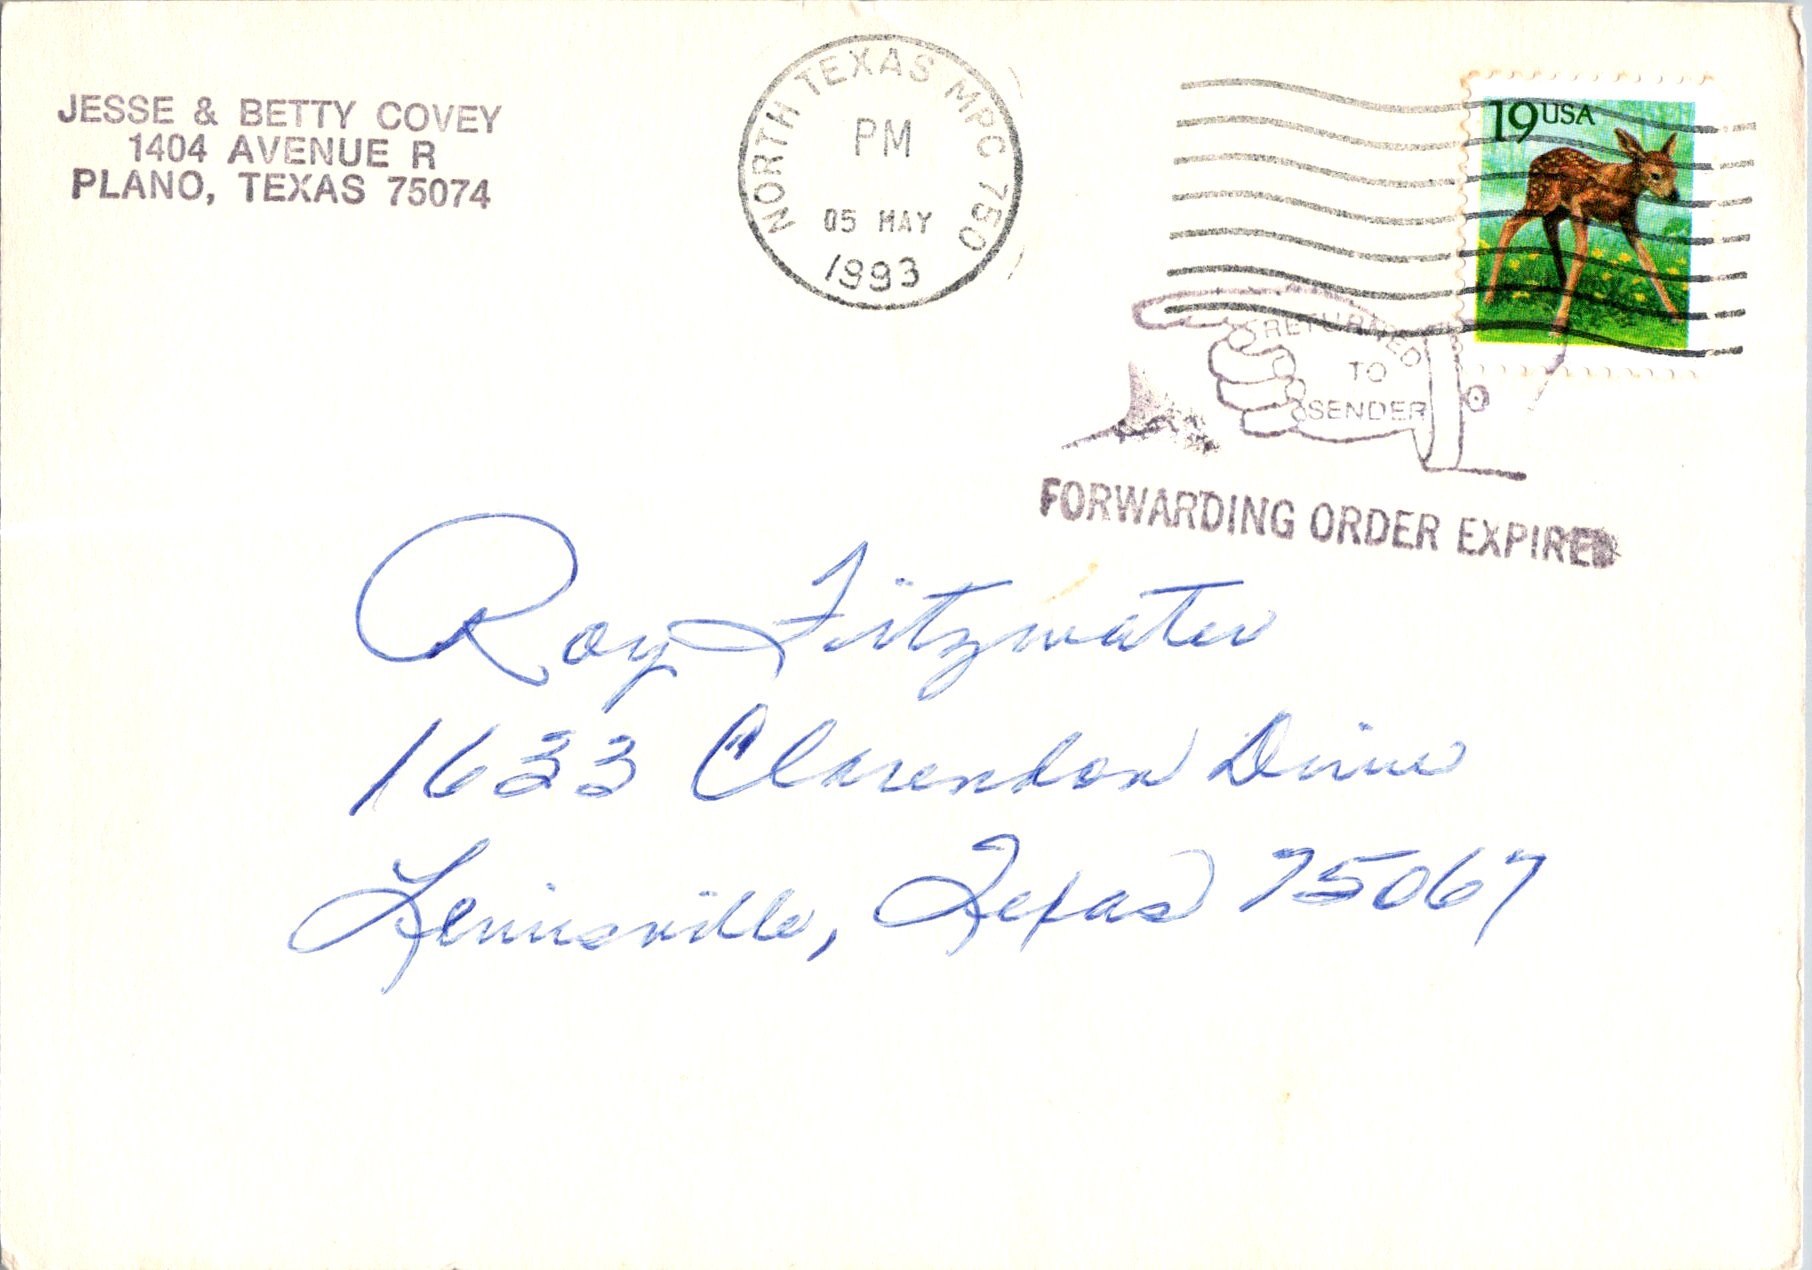 JESSE & BETTY COVEY
1404 AVENUE R
PLANO, TEXAS 75074
NORTH TEXAS MPC 750
PM
05 MAY
1993
19USA
RETURNED
TO
SENDER
FORWARDING ORDER EXPIRED
Roy Fitzwater
1633 Clarendon Drive
Lewisville, Texas 75067